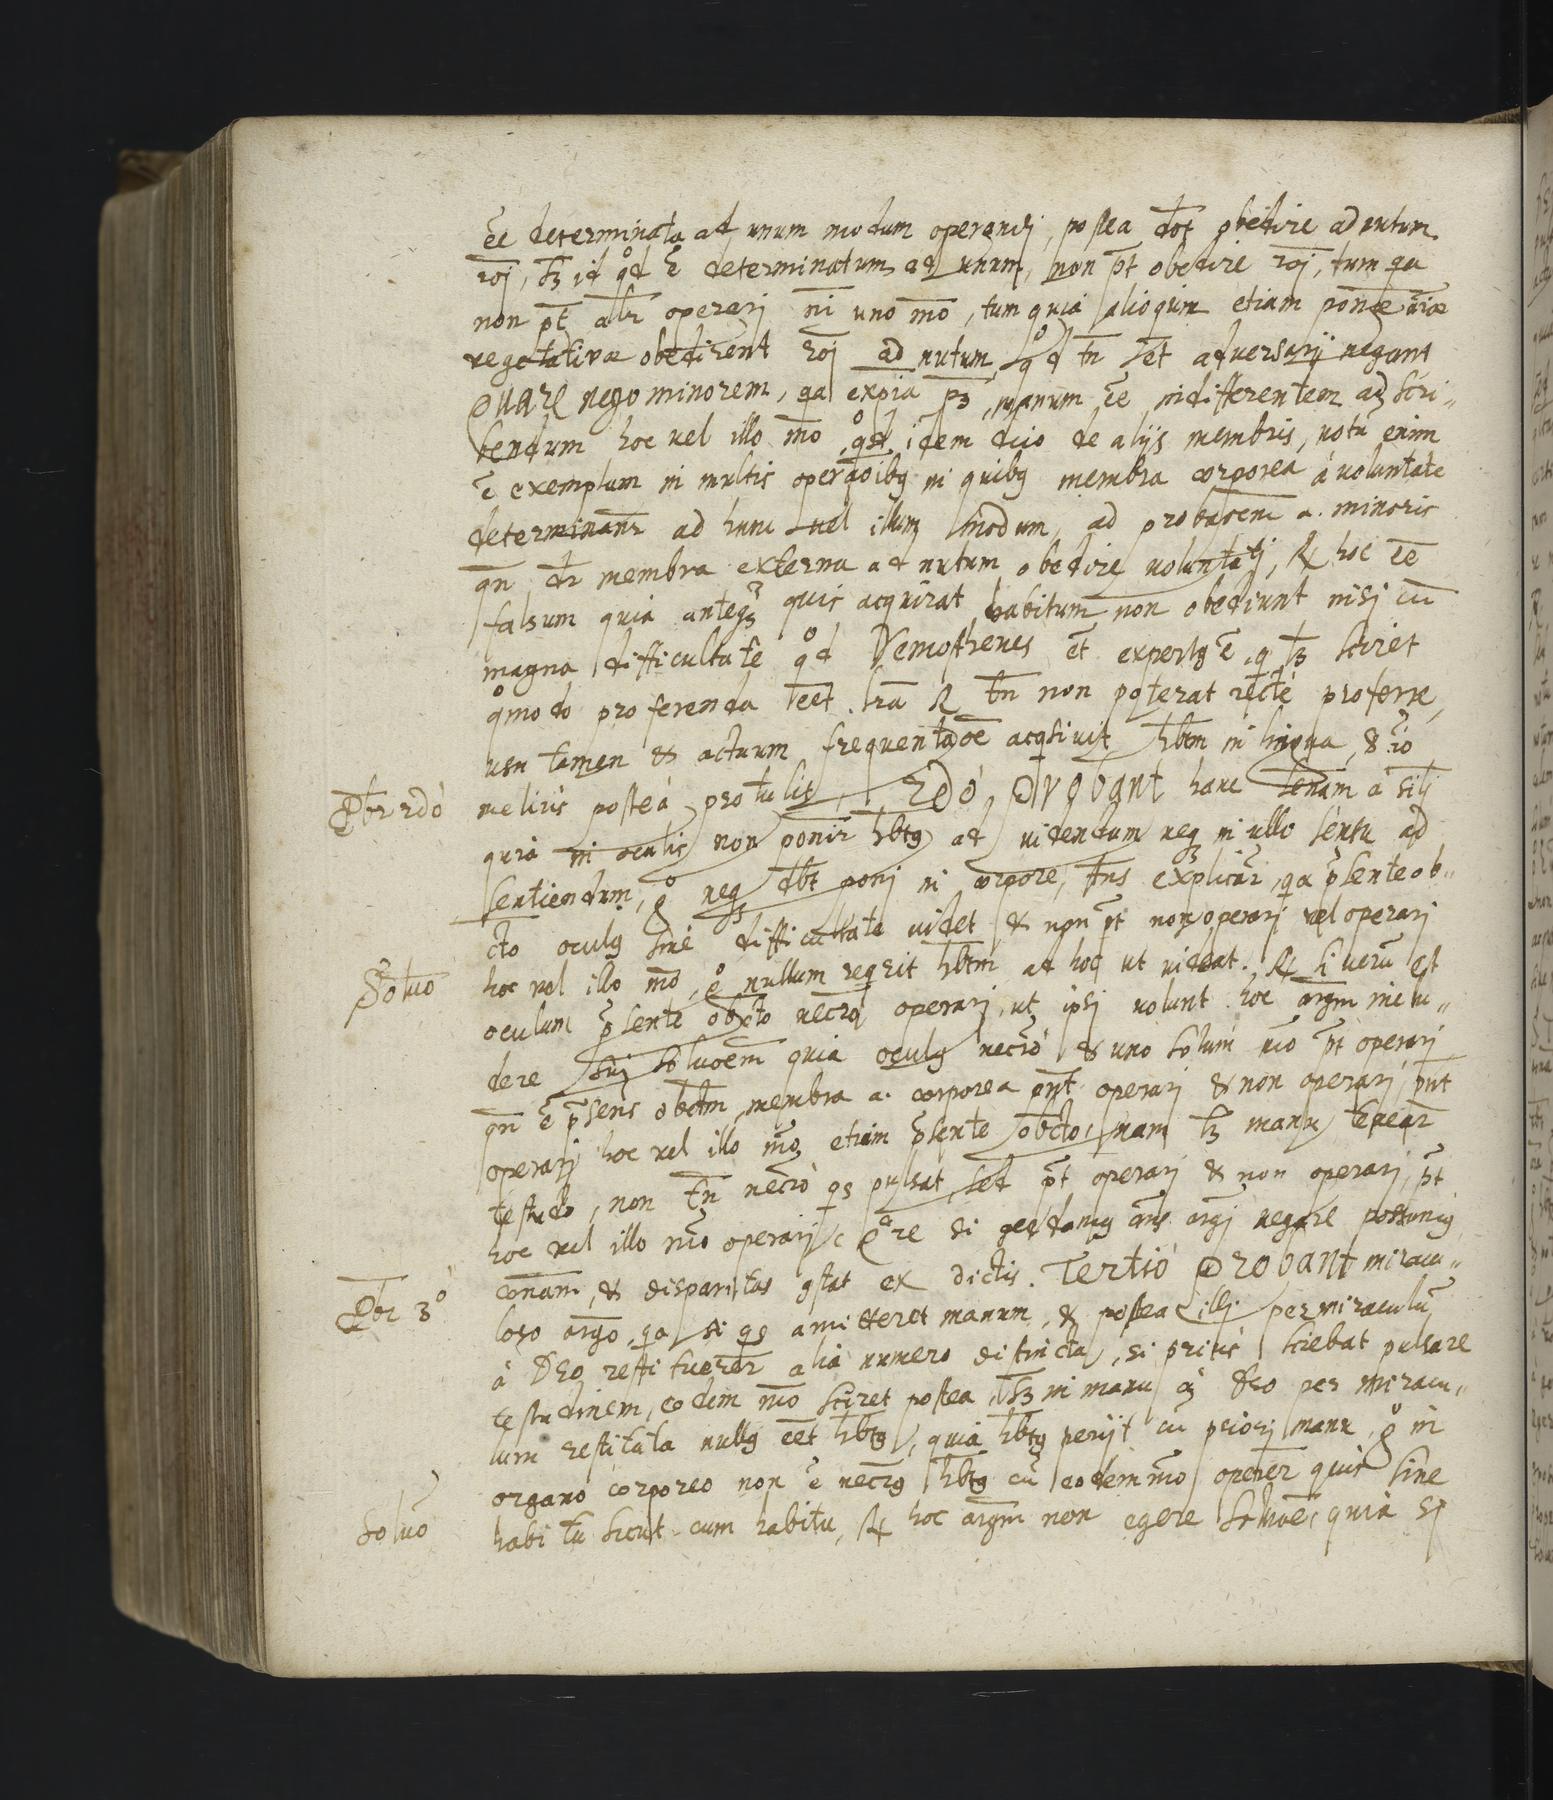 ēe determinata ad unum modum operandi, postea dōt obedire ad nutum
roj, sȝ id qđ ē determinatum ad unum, non pt̄ obedire roj, tum qa
non pt̄ alr̄ operarj ni uno mō, tum quia alioquin etiam ponæ aīæ
vegetativæ obedirent roj ad nutum, qđ tn̄ adversarij negant
Quare nego minorem, qa expia pȝ, manum ēe indifferentem ad scri„
bendum hoc vel illo mō, idem dico de alijs membris, notū enim
ē exemplum in multis operaoibꝰ in quibꝰ membra corporea à voluntate
determinanr̄ ad hunc vel illum modum, ad probaōem a. minoris
qn̄ dr̄ membra externa ad nutum obedire voluntatj, R hoc ēe
falsum quia anteqȝ quis acquirat habitum non obediunt nisj cū
magna difficultate qđ Demosthenes ēt expertꝰ ē, q tȝ sciret
qmodo proferenda ēet lrā R tn̄ non poterat rectè proferre,
usu tamen & actuum frequentaōe acqsivit hbtm in lingua, & iō
Pbr 2dò
melius posteà protulit. 2dò Probant hanc senam à silj
quia in oculis non ponir̄ hbtꝰ ad videndum neqȝ in ullo sensu ad
sentiendum, gͦ neqȝ dbt ponj in corpore, āns explicar̄, qa p̄sente ob„
cto oculꝰ sine difficultate videt & non pt̄ non operarj vel operarj
Solvo
hoc vel illo mō, gͦ nullum reqrit hbtm ad hoc ut videat. R si verū est
oculum p̄sente obcto necrò operarj, ut ipsj volunt hoc argm inclu„
dere suā solvoem quia oculꝰ necrò & uno solum mō pt̄ operarj
qn̄ ē p̄sens obctm, membra a. corporea pn̄t operarj & non operarj, pn̄t
operarj hoc vel illo mō etiam p̄sente obcto, nam tȝ manu teneār
testudo, non tn̄ necrò qs pulsat, sed pt̄ operarj & non operarj, pt̄
hoc vel illo mō operarj qre āns argj negare possumꝰ
conam, & disparitas ɔstat ex dictis. Tertiò Probant miracu„
Pbr 3ͦ
loso argo, qa si qs amitteret manum, & postea illj per miraculū
à Deo restituerer̄ alia numero distincta, si prius sciebat pulsare
testudinem, eodem mō sciret postea, sȝ in manu à Deo per miracu„
lum restituta nullꝰ ēet hbtꝰ, quia hbtꝰ perijt cū priorj manu, gͦ in
organo corporeo non ē necrꝰ hbtꝰ cū eodem mō operer̄ quis sine
Solvo
habitu sicut cum habitu, R hoc argm non egere solvōe, quia sj